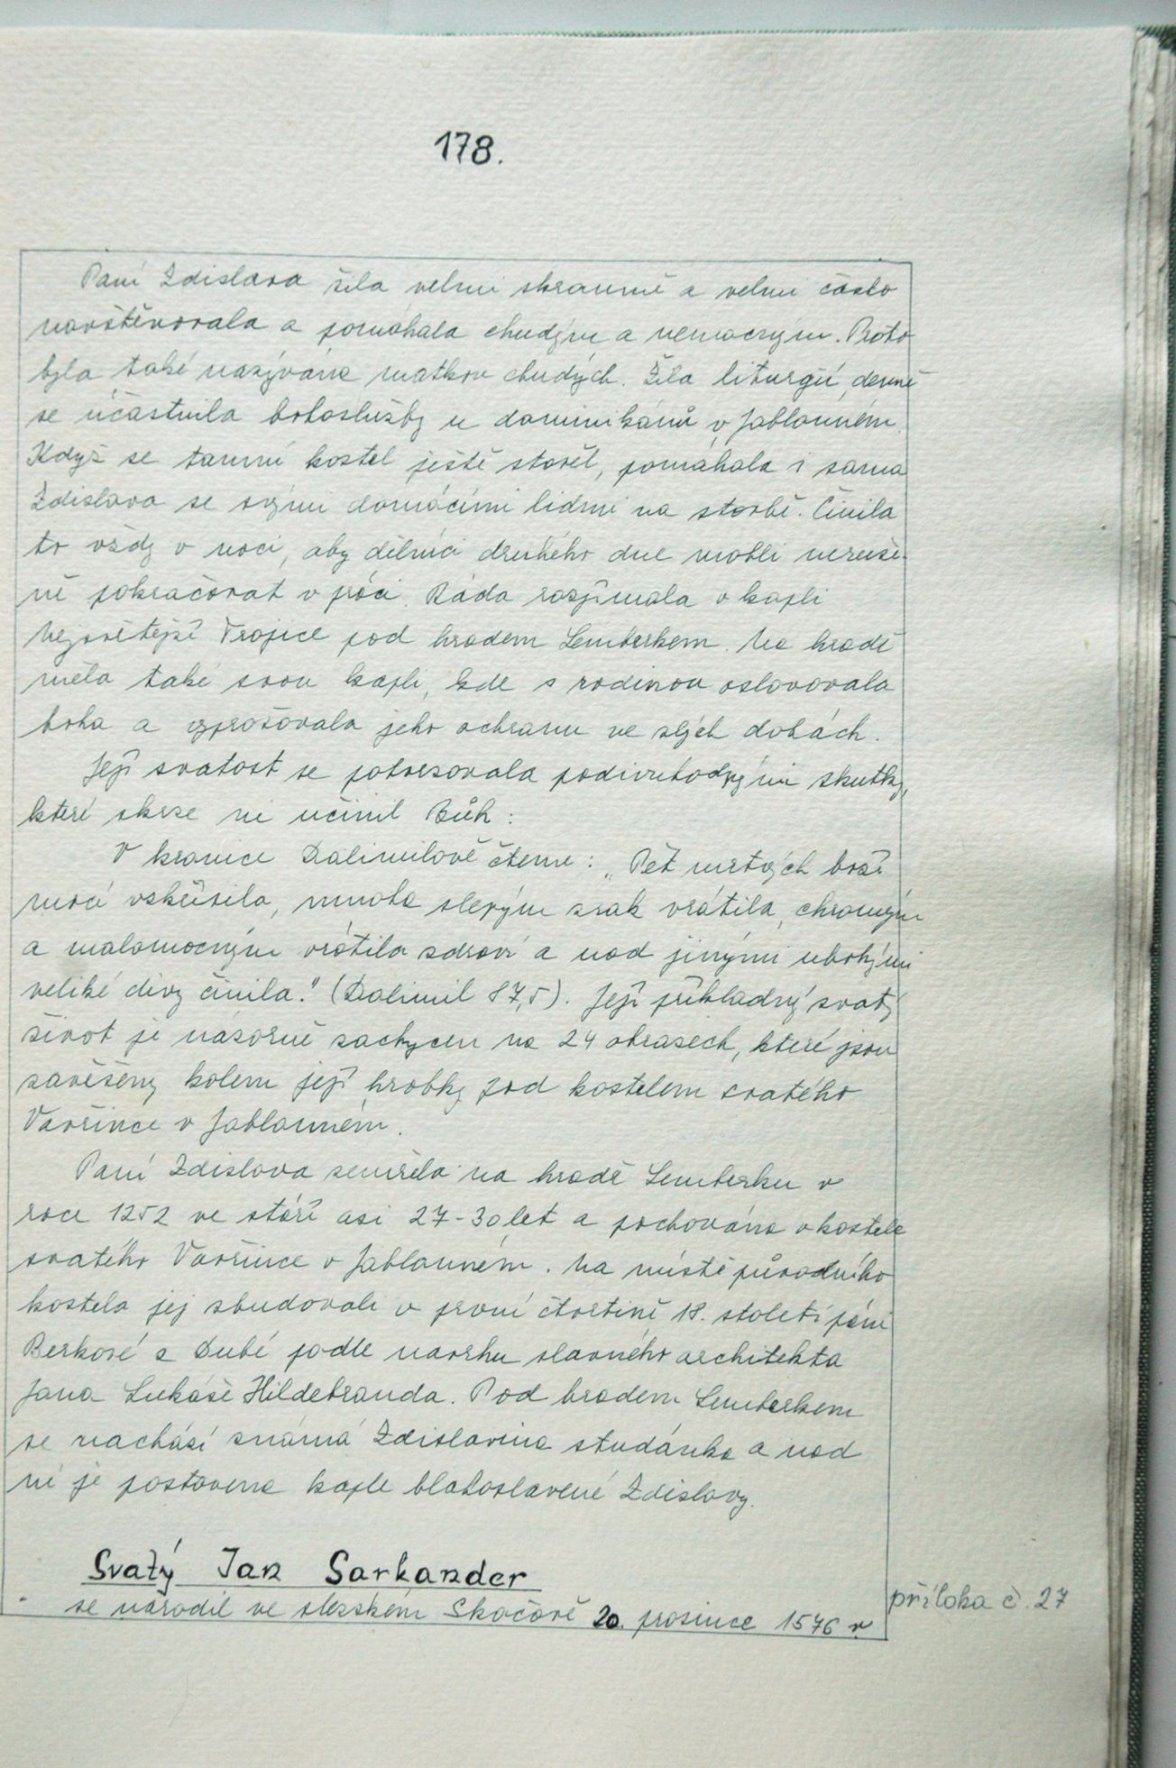 178.
Paní Zdislava žila velmi skromně a velmi často
navštěvovala a pomáhala chudým a nemocným. Proto
byla také nazývána matkou chudých. Žila liturgií, denně
se účastnila bohoslužby u dominikánů v Jablonném.
Když se tamní kostel ještě stavěl, pomáhala i sama
Zdislava se svými domácími lidmi na stavbě. Činila
to vždy v noci, aby dělníci druhého dne mohli neruše-
ně pokračovat v práci. Ráda rozjímala v kapli
Nejsvětější Trojice pod hradem Lemberkem. Na hradě
měla také svou kapli, kde s rodinou oslavovala
boha a vyprošovala jeho ochranu ve zlých dobách.
Její svatost se potvrzovala podivuhodnými skutky,
které skrze ni učinil Bůh:
V kronice Dalimilově čteme: „Pět mrtvých boží
mocí vzkřísila, mnoha slepým zrak vrátila, chromým
a malomocným vrátila zdraví a nad jinými ubohými
veliké divy činila." (Dalimil 87,5). Její příkladný svatý
život je názorně zachycen na 24 obrazech, které jsou
zavěšeny kolem její hrobky pod kostelem svatého
Vavřince v Jablonném.
Paní Zdislava zemřela na hradě Lemberku v
roce 1252 ve stáří asi 27-30 let a pochována v kostele
svatého Vavřince v Jablonném. Na místě původního
kostela jej zbudovali v první čtvrtině 18. století páni
Berkové z Dubé podle návrhu slavného architekta
Jana Lukáše Hildebranda. Pod hradem Lemberkem
se nachází známá Zdislavina studánka a nad
ní je postavena kaple blahoslavené Zdislavy.
Svatý Jan Sarkander
se narodil ve slezském Skočově 20. prosince 1576 v
příloha č. 27